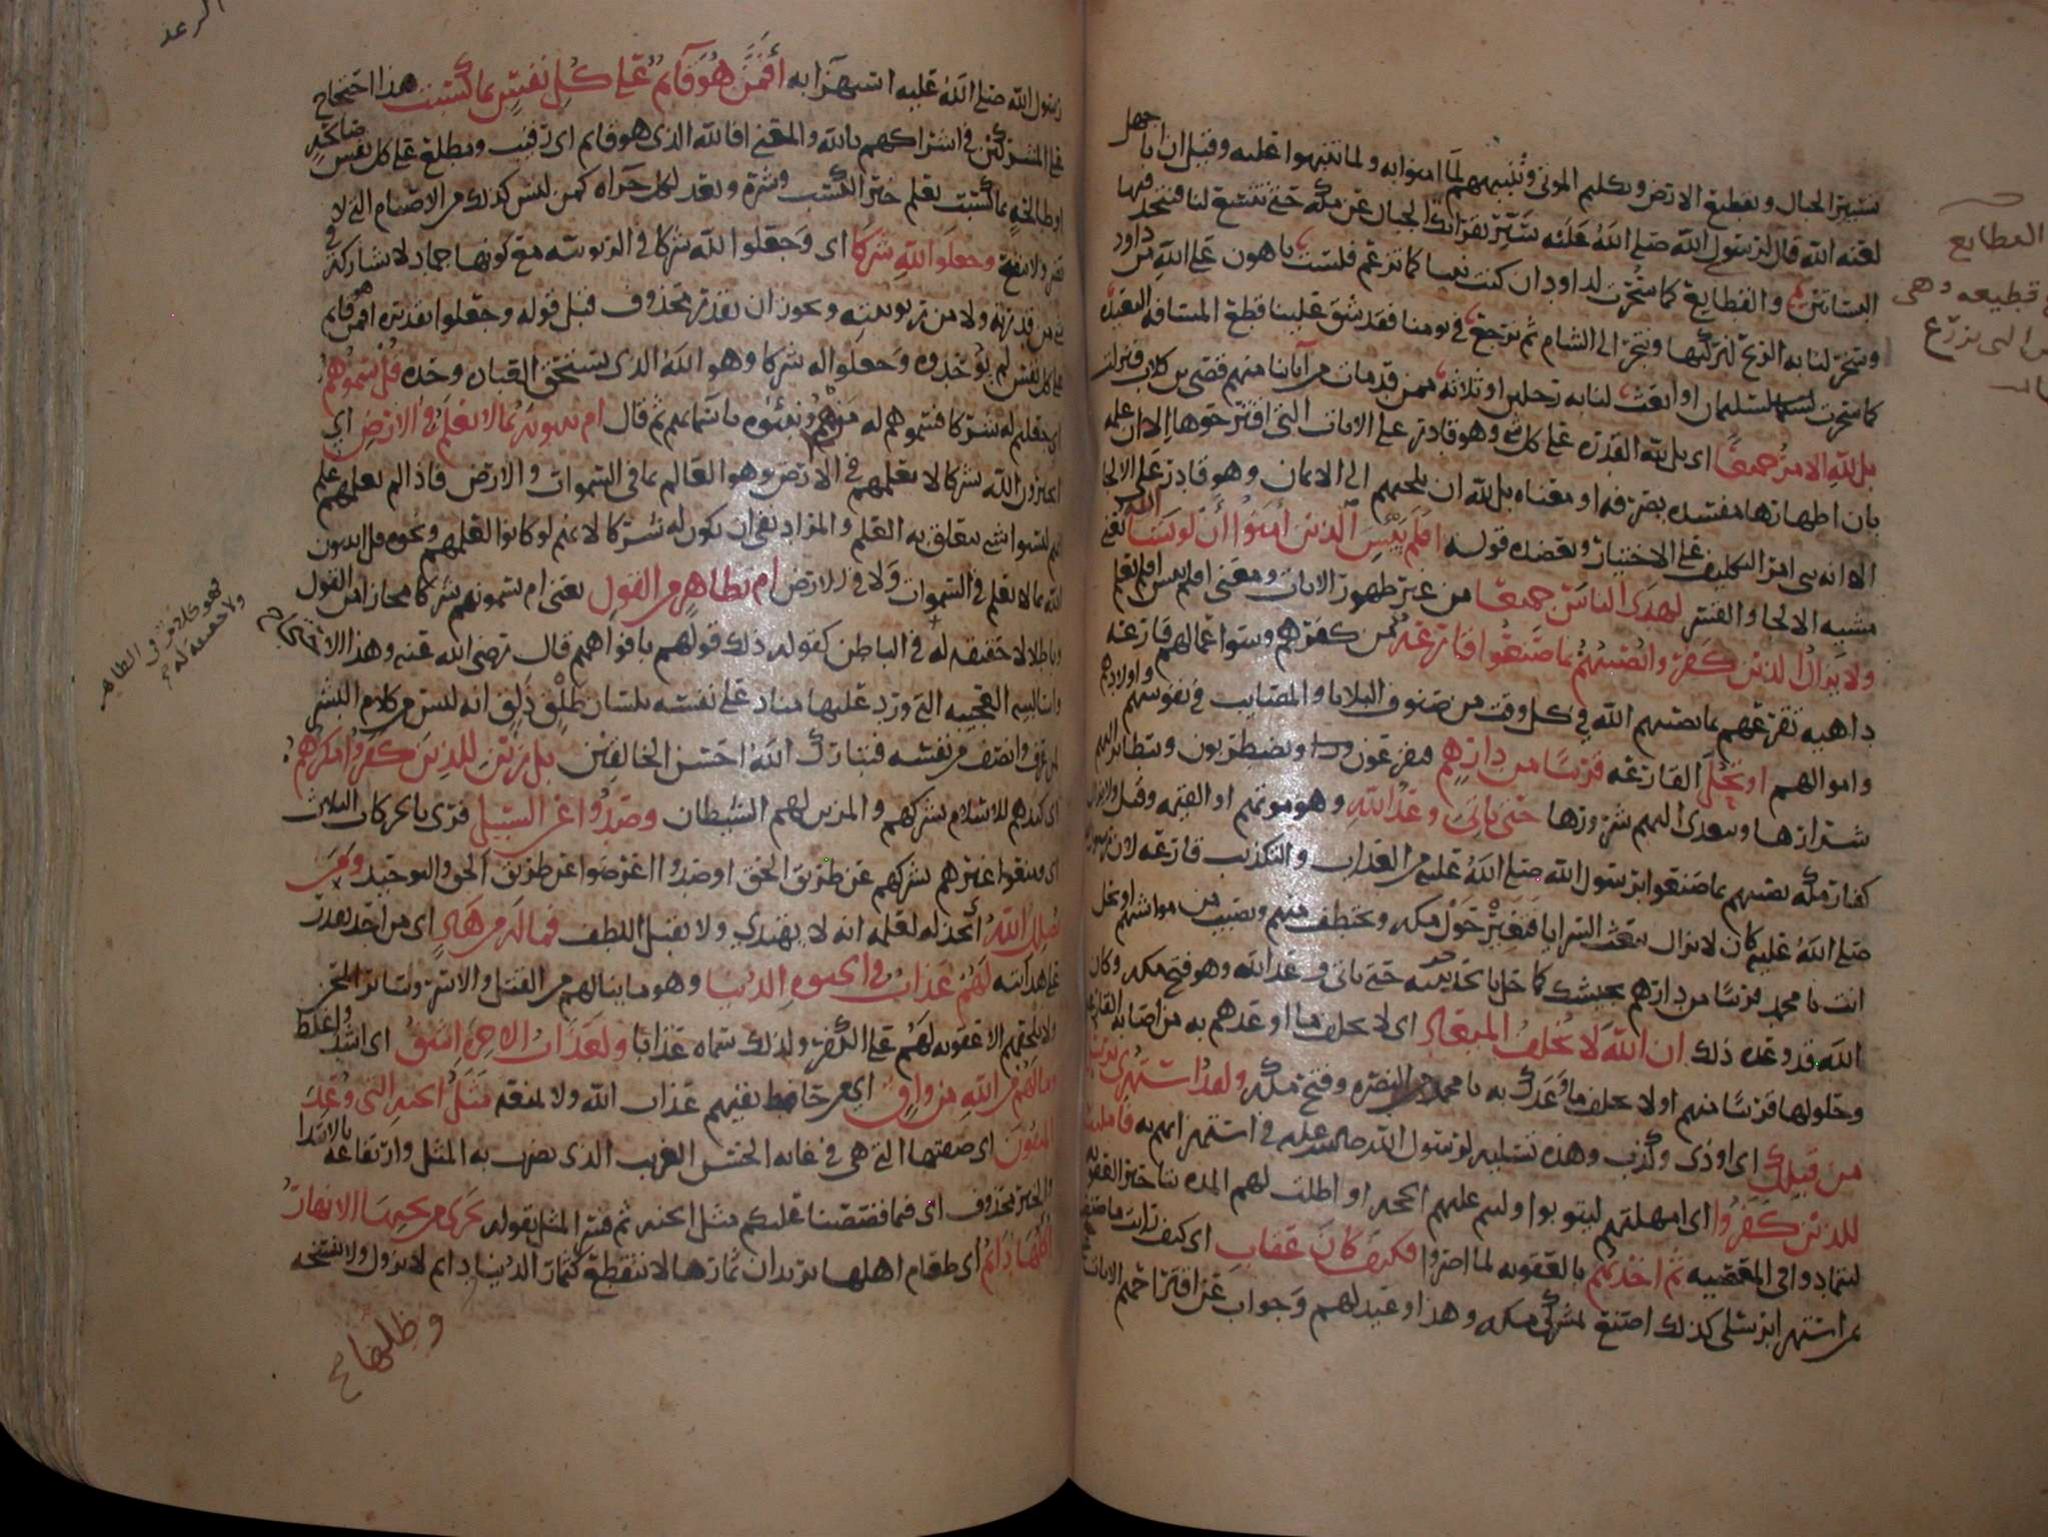 تسيير الجبال وتقطيع الارض وتكليم الموتى وتنبيههم لما امنوا به ولما تنبهوا عليه وقيل ان ابا جهل
لعنه الله قال لرسول الله صلى الله عليه سير بقرانك الجبال عن مكة حتى تتسع لنا فنتخذ فيها
البساتين والقطايع كما سخرت لداود ان كنت نبيا كما تزعم فلست باهون على الله من داود
وسخر لنا به الريح لنركبها ونتجر الى الشام ثم نرجع في يومنا فقد شق علينا قطع المسافه البعيده
كما سخرت لسليمان او ابعث لنا به رجلين او ثلاثه ممن قد مات من آبائنا منهم قصي بن كلاب فنزلت
بل لله الامر جميعا اى بل لله القدرة على كل شي وهو قادر على الايات التي اقترحوها الا ان علمه
بان اظهارها مفسده يصرفه او معناه بل لله ان يلجيهم الى الايمان وهو قادر على الالجا
الا انه بنى امر التكليف على الاختيار ويعضده قوله افلم ييس الذين امنوا ان لو يشا الله يعني
مشية الالجا والقسر لهدى الناس جميعا من غير ظهور الايات ومعنى افلم ييس افلم يعلم
ولا يزال الذين كفروا تصيبهم بما صنعوا قارعة من كفرهم وسوء اعمالهم قارعه
داهيه تقرعهم بما يصيبهم الله في كل وقت من صنوف البلايا والمصايب في نفوسهم واولادهم
واموالهم او تحل القارعه قريبا من دارهم فيفزعون ويضطربون ويتطاير اليهم
شرارها ويتعدى اليهم شرورها حتى ياتى وعد الله وهو موتهم او القيمه وقيل ولا يزال
كفار مكة تصيبهم بما صنعوا برسول الله صلى الله عليه من العداوة والتكذيب قارعه لان رسول الله
صلى الله عليه كان لا يزال يبعث السرايا فتغير حول مكه وتختطف منهم وتصيب من مواشيهم او تحل
انت يا محمد قريبا من دارهم بجيشك كما حل بالحديبيه حتى ياتى وعد الله وهو فتح مكه وكان
الله قد وعده ذلك ان الله لا يخلف الميعاد اى لا يخلف ما اوعدهم به من اصابة القارعه
وحلولها قريبا منهم او لا يخلف ما وعدك به يا محمد من النصره وفتح مكه ولقد استهزى برسل
من قبلك اى اوذى وكذب وهذه تسليه لرسول الله صلى الله عليه في استهزايهم به فامليت
للذين كفروا اى امهلتهم ليتوبوا وليتم عليهم الحجه او اطلت لهم المدة بتاخير العقوبه
ليتمادوا فى المعصيه ثم اخذتهم بالعقوبه لما اصروا فكيف كان عقاب اى كيف رايت ما صنعت
بمن استهزا برسلى كذلك اصنع بمشركى مكه وهذا وعيد لهم وجواب عن اقتراحهم الايات
القطايع
قطيعه وهى
التى تزرع
الرعد
رسول الله صلى الله عليه استهزآ به أفمن هو قآئم على كل نفس بما كسبت هذا احتجاج
على المشركين في اشراكهم بالله والمعنى افالله الذى هو قايم اى رقيب ومطلع على كل نفس صالحة
او طالحة بما كسبت يعلم خير ما كسبت وشره ويعد لكل جزاه كمن ليس كذلك من الاصنام التى لا
تضر ولا تنفع وجعلوا لله شركا اى وجعلوا لله شركا في الربوبيه مع كونها جماد لا تشاركه في
شي من قدرته ولا من ربوبيته ويجوز ان يقدر محذوف قبل قوله وجعلوا تقديره افمن هو قايم
على كل نفس لم يوحدوه وجعلوا له شركا وهو الله الذى يستحق العباده وحده قل سموهم
اى جعلتم له شركا فسموهم له من هم ونبئوه باسمائهم ثم قال ام تنبونه بما لا يعلم في الارض اى
اتخبرون الله بشركا لا يعلمهم في الارض وهو العالم بما في السموات والارض فاذا لم يعلمهم علم
انهم ليسوا بشي يتعلق به العلم والمراد نفى ان يكون له شركا لانهم لو كانوا لعلمهم ونحوه قل اتنبون
الله بما لا يعلم في السموات ولا في الارض ام بظاهر من القول يعنى ام تسمونهم شركا مجازا من القول
وباطلا لا حقيقه له في الباطن كقوله ذلك قولهم بافواههم قال رضى الله عنه وهذا الاحتجاج
واساليبه العجيبه التى ورد عليها مناد على نفسه بلسان طلق ذلق انه ليس من كلام البشر
لمن عرف وانصف من نفسه فتبارك الله احسن الخالقين بل زين للذين كفروا مكرهم
اى كيدهم للاسلام بشركهم والمزين لهم الشيطان وصدوا عن السبيل قرى بالحركات الثلاث
اى ومنعوا غيرهم بشركهم عن طريق الحق او صدوا اعرضوا عن طريق الحق والتوحيد ومن
يضلل الله أى يخذله لعلمه انه لا يهتدي ولا يقبل اللطف فما له من هاد اى من احد يقدر
على هدايته لهم عذاب في الحيوة الدنيا وهو ما ينالهم من القتل والاسر وساير المحن
ولا تلحقهم الا عقوبه لهم على الكفر ولذلك سماه عذابا ولعذاب الاخرة اشق اى اشد واغلظ
وما لهم من الله من واق اى من حافظ يقيهم عذاب الله ولا يمنعه مثل الجنه التى وعد
المتقون اى صفتها التى هى في غاية الحسن الغريب الذى يضرب به المثل وارتفاعه بالابتدا
والخبر محذوف اى فيما قصصنا عليكم مثل الجنه ثم فسر المثل بقوله تجرى من تحتها الانهار
اكلها دائم اى طعام اهلها يريد ان ثمارها لا تنقطع كثمار الدنيا دايم لا يزول ولا تنسخه
وظلها
فهو كلام في الظاهر
ولا حقيقه له